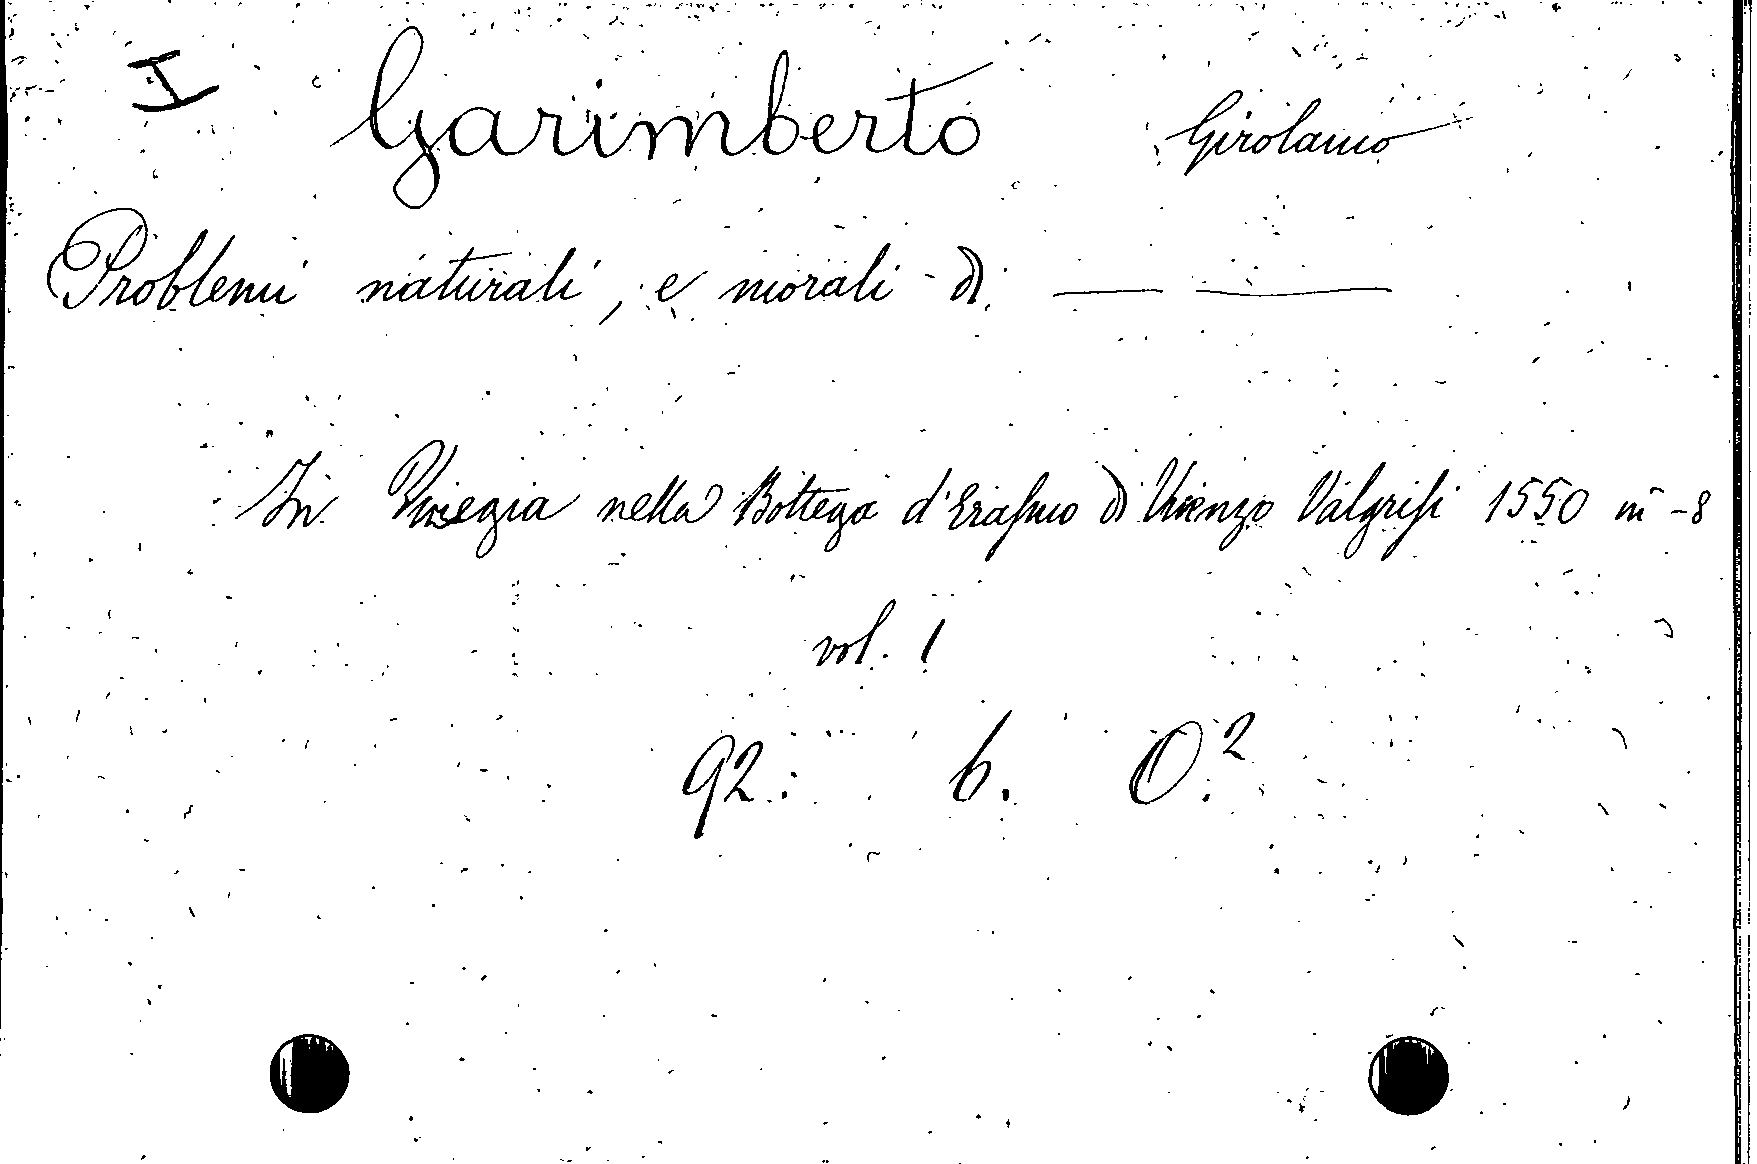 I Garimberto Girolamo
Problemi naturali, e morali di — —
In Vinegia nella Bottega d'Erasmo di Vicenzo Valgrisi 1550 in-8
vol. 1
92. 6. O.²